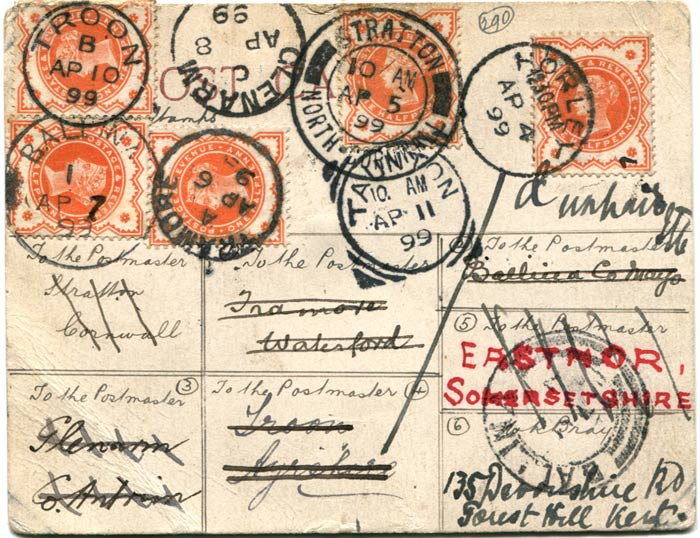 290
TROON
B
AP 10
99
GLENARM
C
AP 8
99
POST CA
STRATTON
10 AM
AP 5
99
NORTH CORNWALL
HORLEY
4.10PM
AP 4
99
POSTAGE & REVENUE
HALFPENNY
Stamps
BALLINA
1
AP 7
99
TRAMORE
A
AP 6
99
TAUNTON
10. AM
AP 11
99
To the Postmaster
Stratton
Cornwall
To the Postmaster
Tramore
Waterford
To the Postmaster
Ballina Co Mayo
③
To the Postmaster
Glenarm
Co. Antrim
④
To the Postmaster
Troon
Ayrshire
⑤
To the Postmaster
EASTNOR,
SOMERSETSHIRE
⑥
Bray
135 Devonshire Rd
Forest Hill Kent.